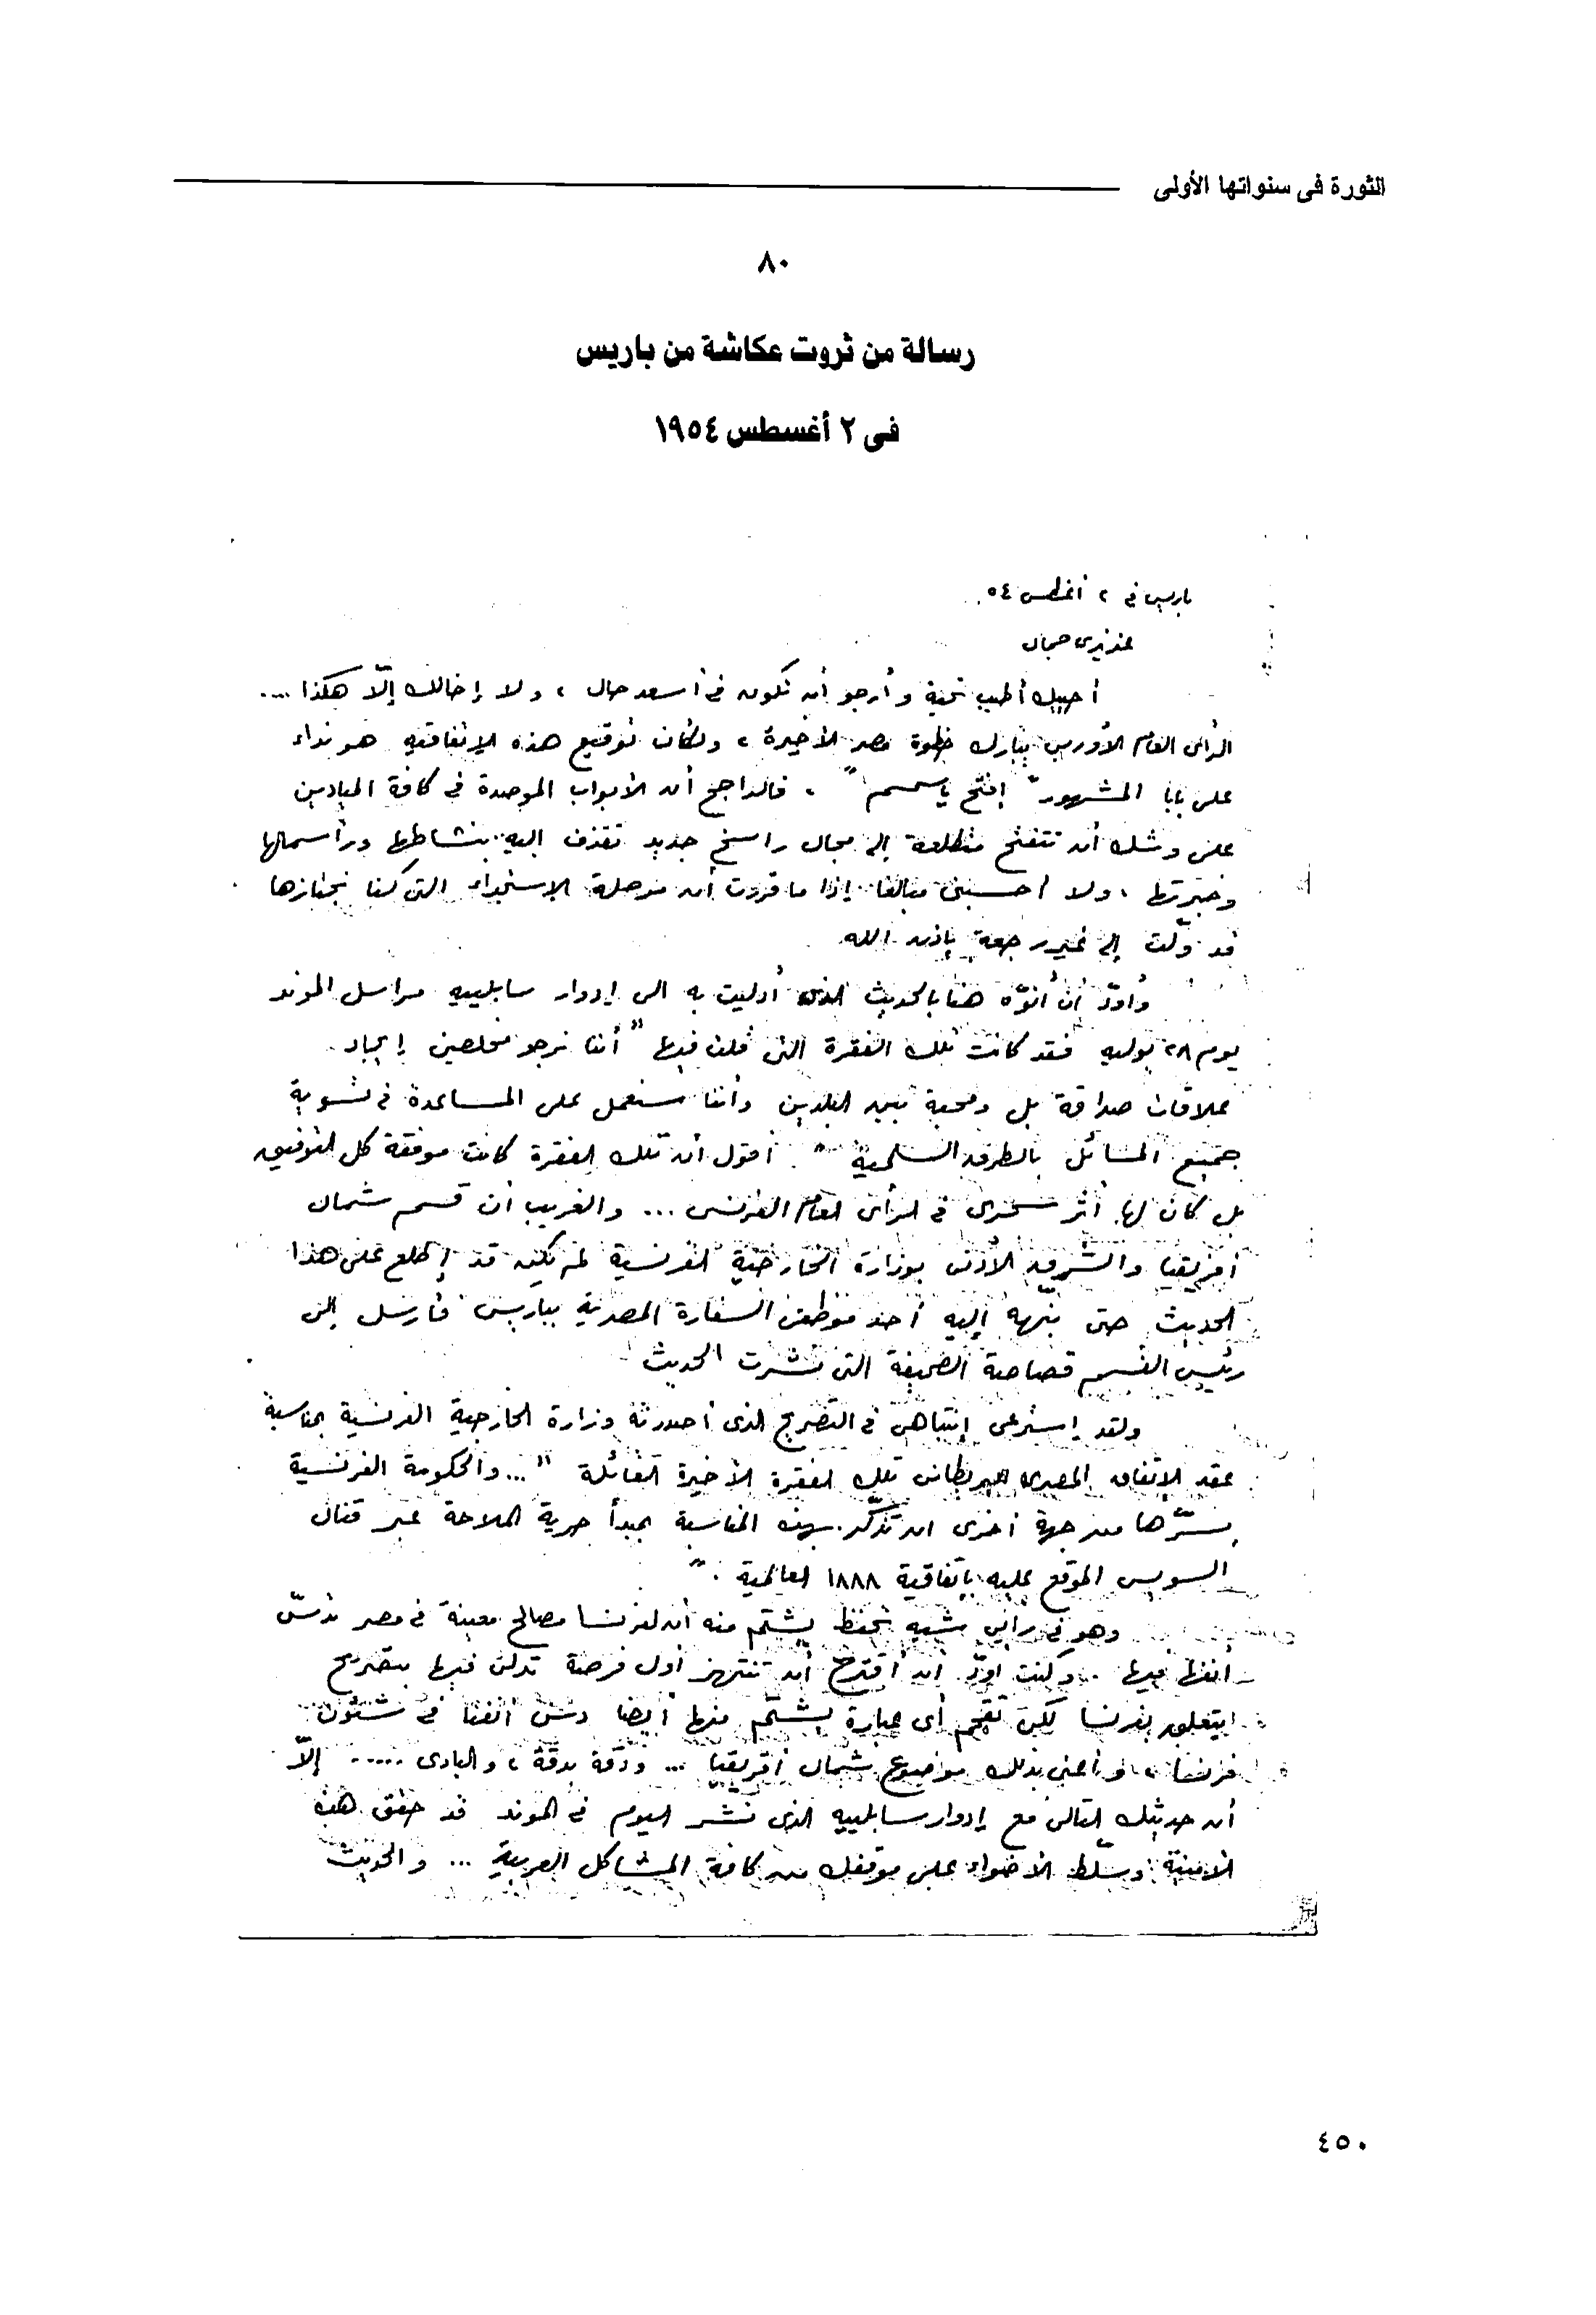 الثورة فى سنواتها الأولى
٨٠
رسالة من ثروت عكاشة من باريس
فى ٢ أغسطس ١٩٥٤
باريس فى ٢ أغسطس ٥٤
عزيزى جمال
أحييك أطيب تحية وأرجو أن تكون فى أسعد حال ، ولا إخالك إلّا هكذا ....
الرأى العام الأوربى يبارك خطوة مصر الأخيرة ، ولكأن توقيع هذه الإتفاقية هو نداء
على بابا المشهور " إفتح يا سمسم " ، فالراجح أن الأبواب الموصدة فى كافة الميادين
على وشك أن تتفتح متطلعة إلى مجال راسخ جديد تقذف إليه بنشاطها ورأسمالها
وخبرتها ، ولا أحسبنى مبالغا إذا ما قررت أن مرحلة الإستجداء التى كنا نجتازها
قد ولّت إلى غير رجعة بإذن الله
وأودّ أن أنوّه هنا بالحديث الذى أدليت به الى إدوار سابلييه مراسل الموند
يوم ٢٨ يوليه فقد كانت تلك الفقرة التى قلت فيها " أننا نرجو مخلصين إيجاد
علاقات صداقة بل ومحبة بين البلدين وأننا سنعمل على المساعدة فى تسوية
جميع المسائل بالطرق السلمية " . أقول أن تلك الفقرة كانت موفقة كل التوفيق
بل كان لها أثر سحرى فى الرأى العام الفرنسى ... والغريب أن قسم شمال
أفريقيا والشرق الأدنى بوزارة الخارجية الفرنسية لم يكن قد إطلع على هذا
الحديث حتى نبهه إليه أحد موظفى السفارة المصرية بباريس فأرسل إلى
رئيس القسم قصاصة الصحيفة التى نشرت الحديث
ولقد إسترعى إنتباهى فى التصريح الذى أصدرته وزارة الخارجية الفرنسية بمناسبة
عقد الإتفاق المصرى البريطانى تلك الفقرة الأخيرة القائلة " ... والحكومة الفرنسية
يسرّها من جهة أخرى ان تذكّر بهذه المناسبة بمبدأ حرية الملاحة عبر قنال
السويس الموقع عليه بإتفاقية ١٨٨٨ العالمية . "
وهو فى رأيى شبه تحفظ يشتم منه أن لفرنسا مصالح معينة فى مصر تدسّ
أنفها فيها .. وكنت اودّ ان أقترح أن تنتهز أول فرصة تدلى فيها بتصريح
يتعلق بفرنسا لكى تقحم أى عبارة يشتّم منها أيضا دسّ أنفنا فى شئون
فرنسا ، وأعنى بذلك موضوع شمال أفريقيا ... ودقة بدقة ، والبادى ..... إلّا
أن حديثك التالى مع إدوار سابلييه الذى نشر اليوم فى الموند قد حقق هذه
الأمنية وسلّط الأضواء على موقفك من كافة المشاكل العربية ... والحديث
٤٥٠